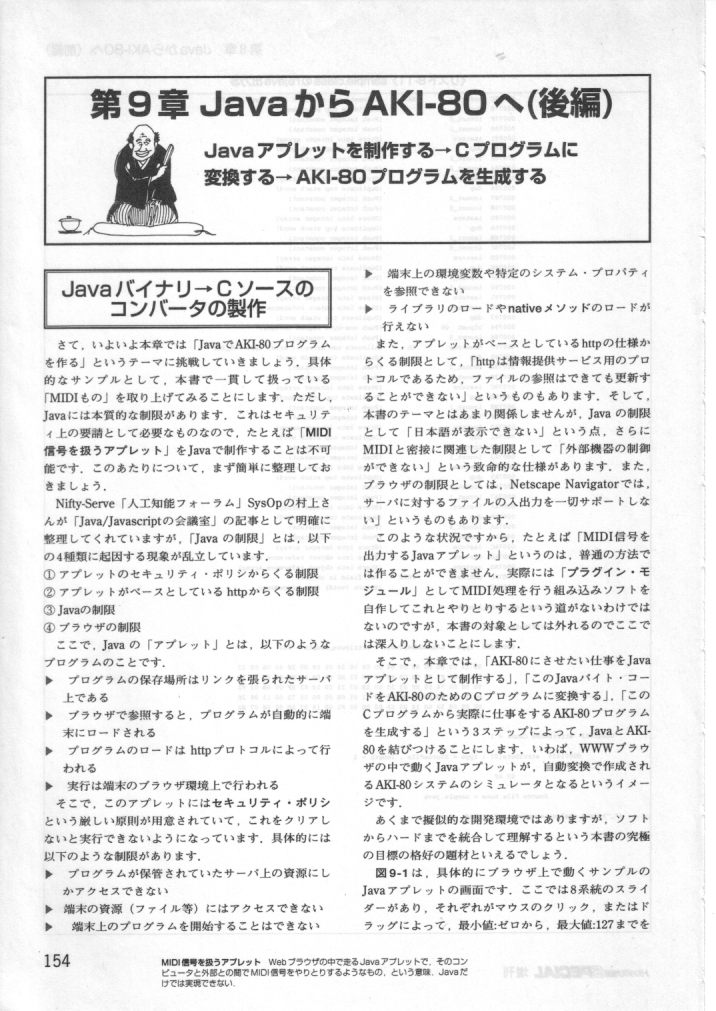 第9章 JavaからAKI-80へ(後編)
Javaアプレットを制作する→Cプログラムに
変換する→AKI-80プログラムを生成する
Javaバイナリ→Cソースの
コンバータの製作
さて，いよいよ本章では「JavaでAKI-80プログラム
を作る」というテーマに挑戦していきましょう．具体
的なサンプルとして，本書で一貫して扱っている
「MIDIもの」を取り上げてみることにします．ただし，
Javaには本質的な制限があります．これはセキュリテ
ィ上の要請として必要なものなので，たとえば「MIDI
信号を扱うアプレット」をJavaで制作することは不可
能です．このあたりについて，まず簡単に整理してお
きましょう．
Nifty-Serve「人工知能フォーラム」SysOpの村上さ
んが「Java/Javascriptの会議室」の記事として明確に
整理してくれていますが，「Java の制限」とは，以下
の4種類に起因する現象が乱立しています．
① アプレットのセキュリティ・ポリシからくる制限
② アプレットがベースとしている httpからくる制限
③ Javaの制限
④ ブラウザの制限
ここで，Java の「アプレット」とは，以下のような
プログラムのことです．
▶ プログラムの保存場所はリンクを張られたサーバ
上である
▶ ブラウザで参照すると，プログラムが自動的に端
末にロードされる
▶ プログラムのロードは httpプロトコルによって行
われる
▶ 実行は端末のブラウザ環境上で行われる
そこで，このアプレットにはセキュリティ・ポリシ
という厳しい原則が用意されていて，これをクリアし
ないと実行できないようになっています．具体的には
以下のような制限があります．
▶ プログラムが保管されていたサーバ上の資源にし
かアクセスできない
▶ 端末の資源（ファイル等）にはアクセスできない
▶ 端末上のプログラムを開始することはできない
▶ 端末上の環境変数や特定のシステム・プロパティ
を参照できない
▶ ライブラリのロードやnativeメソッドのロードが
行えない
また，アプレットがベースとしているhttpの仕様か
らくる制限として，「httpは情報提供サービス用のプロ
トコルであるため，ファイルの参照はできても更新す
ることができない」というものもあります．そして，
本書のテーマとはあまり関係しませんが，Java の制限
として「日本語が表示できない」という点，さらに
MIDIと密接に関連した制限として「外部機器の制御
ができない」という致命的な仕様があります．また，
ブラウザの制限としては，Netscape Navigatorでは，
サーバに対するファイルの入出力を一切サポートしな
い」というものもあります．
このような状況ですから，たとえば「MIDI信号を
出力するJavaアプレット」というのは，普通の方法で
は作ることができません．実際には「プラグイン・モ
ジュール」としてMIDI処理を行う組み込みソフトを
自作してこれとやりとりするという道がないわけでは
ないのですが，本書の対象としては外れるのでここで
は深入りしないことにします．
そこで，本章では，「AKI-80にさせたい仕事をJava
アプレットとして制作する」，「このJavaバイト・コー
ドをAKI-80のためのCプログラムに変換する」，「この
Cプログラムから実際に仕事をするAKI-80プログラム
を生成する」という3ステップによって，JavaとAKI-
80を結びつけることにします．いわば，WWWブラウ
ザの中で動くJavaアプレットが，自動変換で作成され
るAKI-80システムのシミュレータとなるというイメー
ジです．
あくまで擬似的な開発環境ではありますが，ソフト
からハードまでを統合して理解するという本書の究極
の目標の格好の題材といえるでしょう．
図9-1は，具体的にブラウザ上で動くサンプルの
Javaアプレットの画面です．ここでは8系統のスライ
ダーがあり，それぞれがマウスのクリック，またはド
ラッグによって，最小値:ゼロから，最大値:127までを
154
MIDI信号を扱うアプレット Webブラウザの中で走るJavaアプレットで，そのコン
ピュータと外部との間でMIDI信号をやりとりするようなもの，という意味．Javaだ
けでは実現できない．